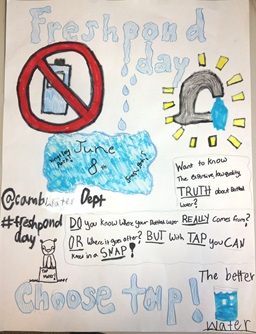 Freshpond
day
June
8th
Want to know
The
TRUTH about Bottled
Water?
@cambwater Dept
#freshpond
day
DO you know where your Bottled Water REALLY comes from?
OR Where is goes after? BUT With TAP you CAN
know in a SNAP!
The better
Choose tap!
water